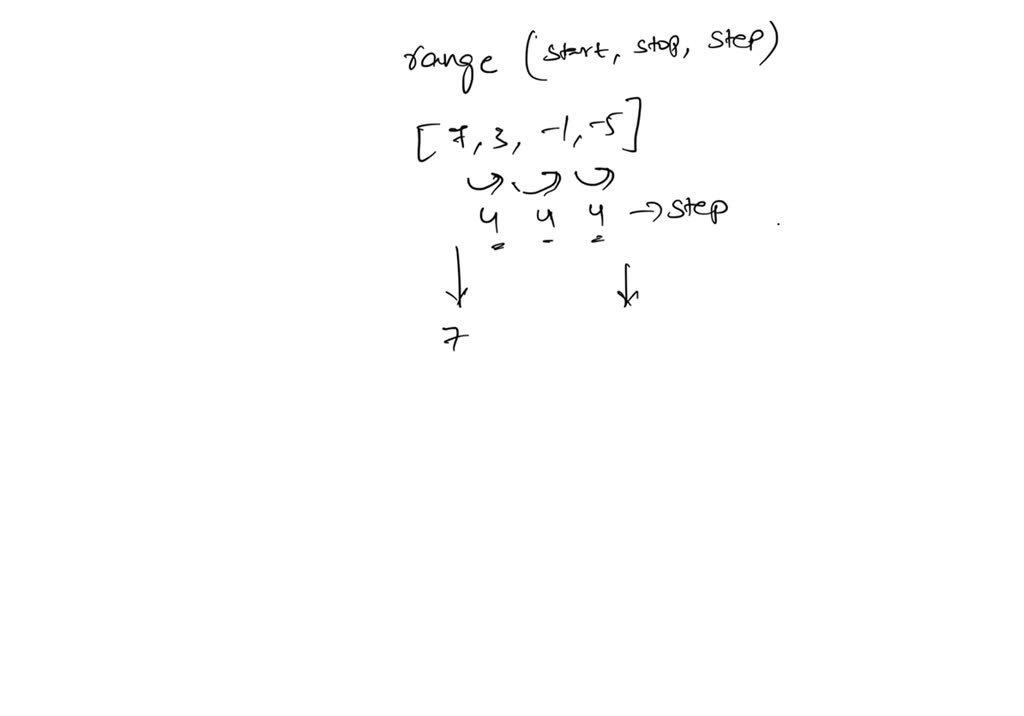 range (start, stop, step)
[7, 3, -1, -5]
4 4 4 → step
7